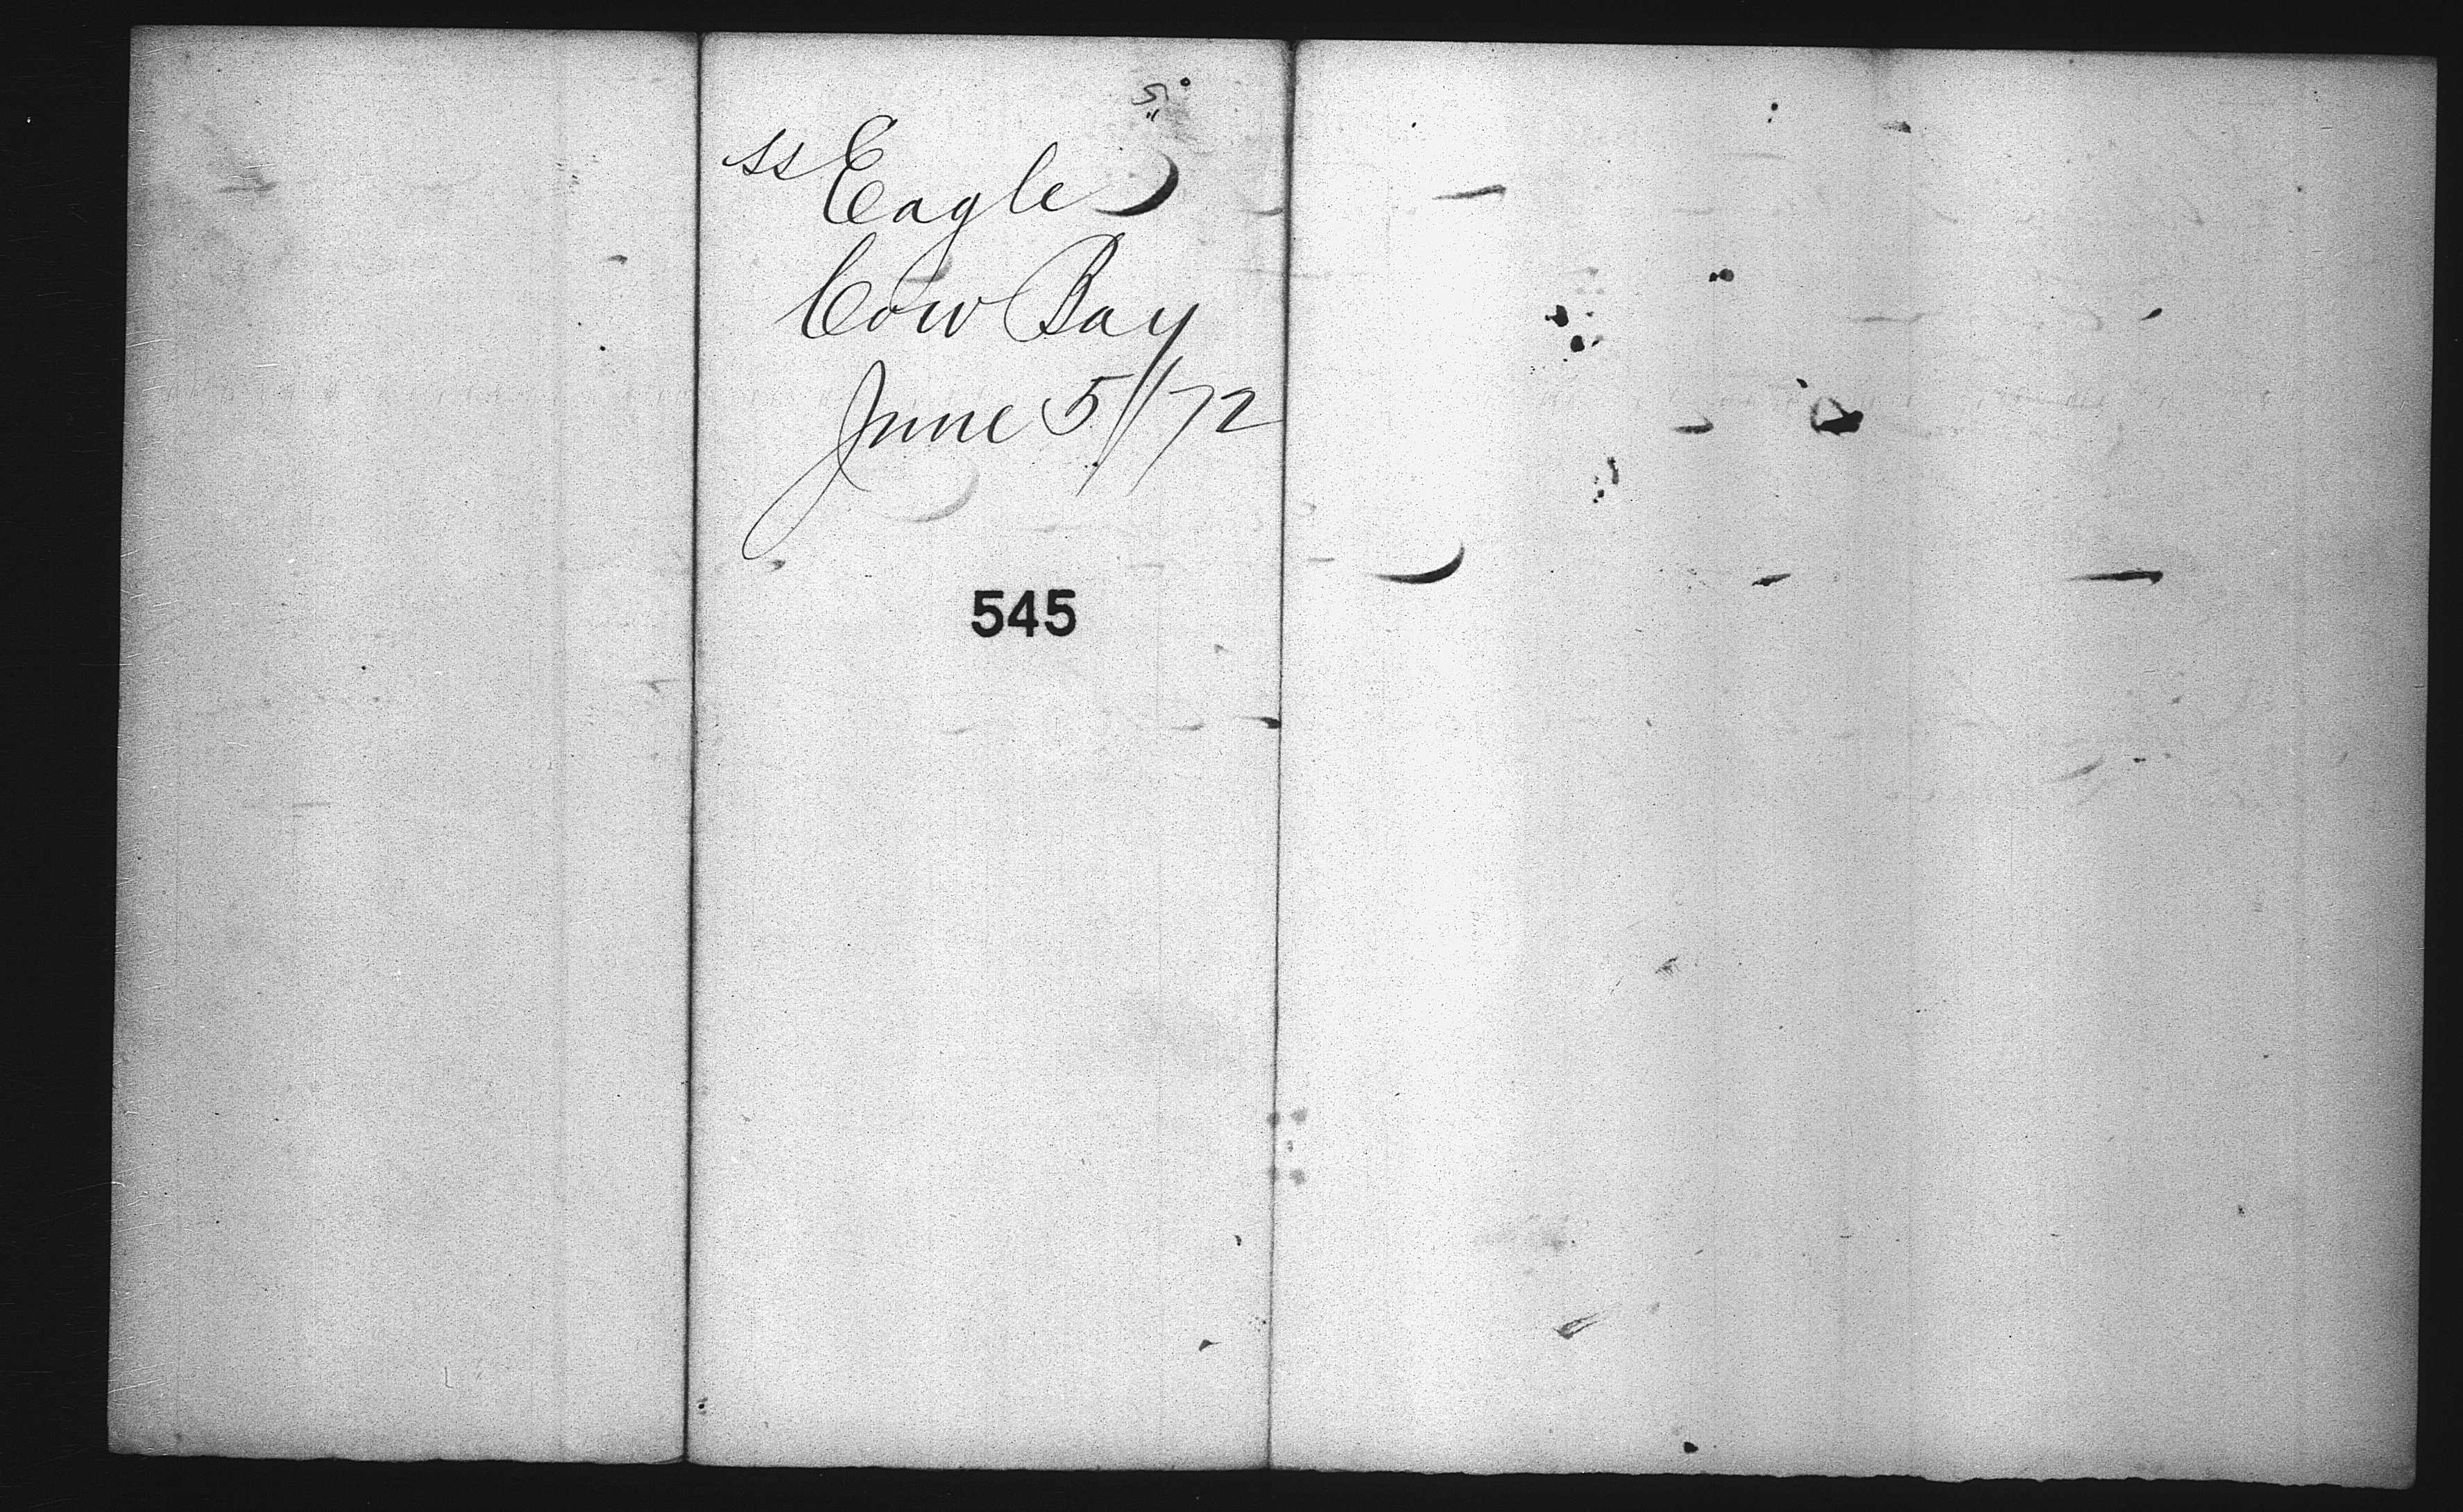 ss Eagle
Cow Bay
June 5//72
545